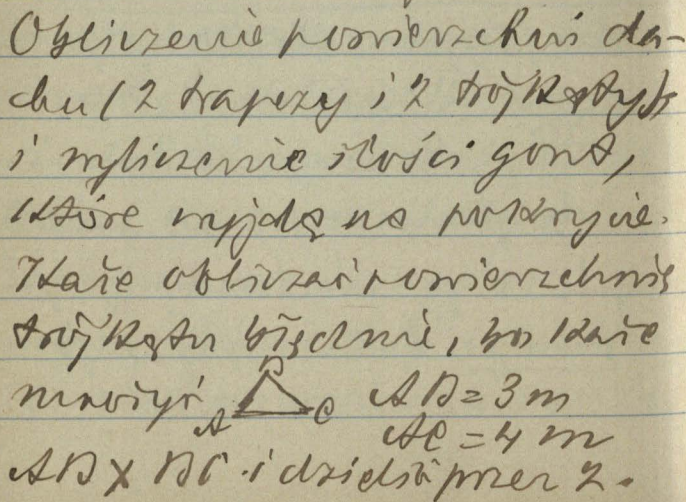 Obliczenie powierzchni da-
chu (2 trapezy i 2 trójkąty)
i wyliczenie ilości gont,
które wyjdą na pokrycie.
Każe obliczać powierzchnię
trójkąta błędnie, bo każe
mnożyć B AB = 3 m
A C AC = 4 m
AB X BC i dzielić przez 2.